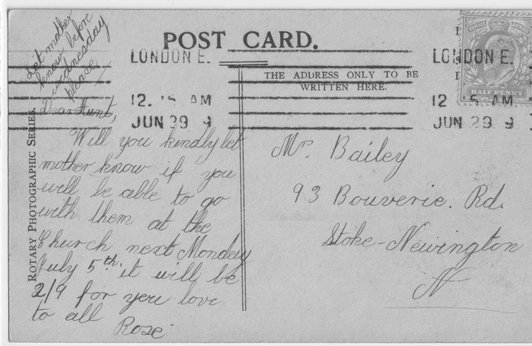 Let mother
know before
Wednesday
please
POST CARD.
LONDON E.
12. 15 AM
JUN 29 9
LONDON E.
12 15 AM
JUN 29 9
HALF PENNY
THE ADDRESS ONLY TO BE
WRITTEN HERE.
ROTARY PHOTOGRAPHIC SERIES.
Dear Aunt,
Will you kindly let
mother know if you
will be able to go
with them at the
Church next Monday
July 5th it will be
2/9 for you love
to all Rose
Mrs Bailey
93 Bouverie. Rd.
Stoke-Newington
N